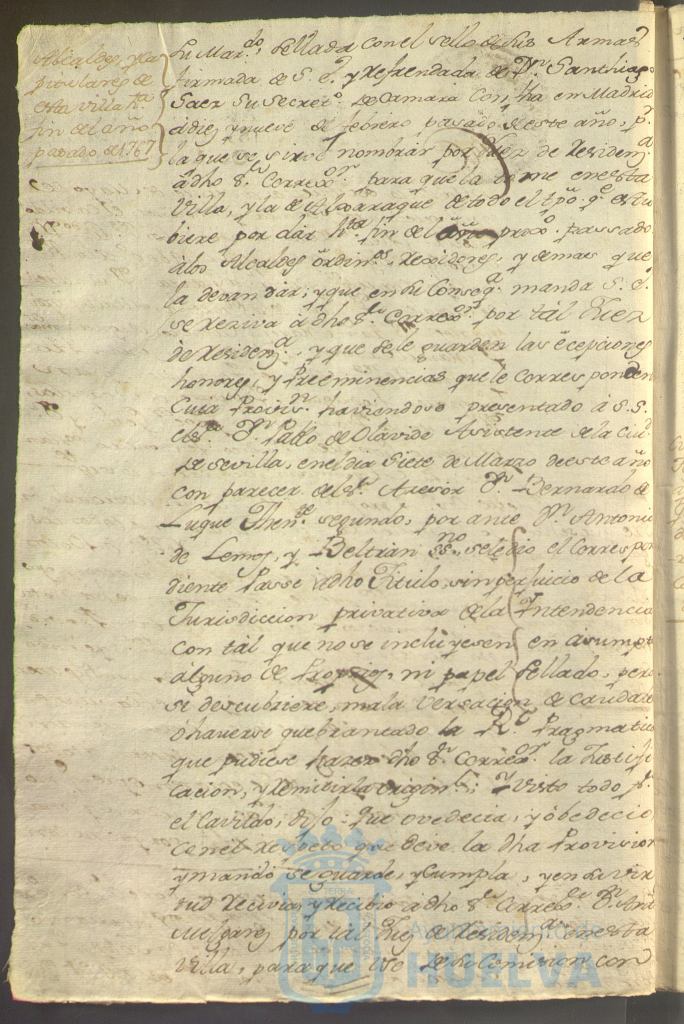 Alcaldes, y Ca
pitulares de
esta villa hta
fin del año
pasado de 1767
su Mardo, sellada con el sello de sus Armas
firmada de S. E. y Refrendada de Dn Santhiago
Saez su Secreto de Camara con fha en Madrid
a diez y nueve de febrero pasado de este año, pr
la que se sirve nombrar por Juez de Residena
a dho Sr Corregor para que la tome en esta
villa, y la de Aljaraque de todo el tpo qe estu
biere por dar hta fin de el año proxo passado
a los Alcaldes ordinos, Rexidores, y demas que
la devan dar; y que en su Conseqa manda S. E.
se reziva a dho Sr Corregor por tal Juez
de Residena, y que se le guarden las ecepciones
honores, y Preeminencias que le corresponden
Cuia Provisn haviendose presentado a S. S.
el Sr Dn Pablo de Olavide Asistente de la Ciud
de Sevilla, en el dia Siete de Marzo de este año
con parecer del Sr Asesor Dn Bernardo de
Luque Thente segundo, por ante Dn Antonio
de Lemos, y Beltran Ssno, se le dio el Correspon
diente Passe a dho Titulo, sin perjuicio de la
Jurisdiccion privativa de la Intendencia
con tal que no se incluyesen en asumpto
alguno de Proprios, ni papel Sellado, pero
si descubriere, mala versacion de caudales
ó haverse quebrantado la Rl Pragmatica
que pudiese hazer dho Sr Corregor la Justifi
cacion, y Remitirla origинl; Y visto todo pr
el Cavildo, dijo: que ovedecia, y óbedecio
con el respeto que deve la dha Provision
y mandó se guarde, y Cumpla, y en su vir
tud recivia, y recibio a dho Sr Corregor Dn
por tal Juez de Residena en esta
villa, para que Use de su Comision con
Ayuntamiento de
HUELVA